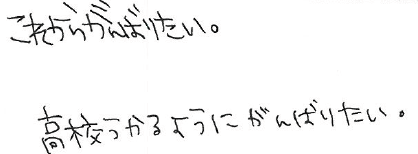 これからがんばりたい。
高校うかるようにがんばりたい。